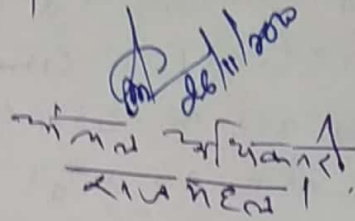 26/11/2020
अंचल अधिकारी
राजमहल।